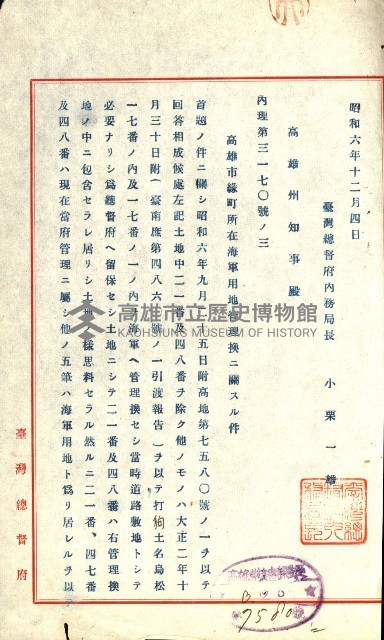 昭和六年十二月四日
臺灣總督府内務局長 小栗一雄
高雄州知事殿
内理第三一七〇號ノ三
高雄市綠町所在海軍用地管理換ニ關スル件
首題ノ件ニ關シ昭和六年九月二十五日附高地第七五八〇號ノ一ヲ以テ
回答相成候處左記土地中二一番及四八番ヲ除ク他ノモノハ大正二年十
月三十日附(臺南庶第四八六號ノ一引渡報告)ヲ以テ打狗土名鳥松
一七番ノ内及一七番ノ一ノ内ヲ海軍ヘ管理換セシ當時道路敷地トシテ
必要ナリシ爲總督府ヘ留保セシ土地ニシテ二一番及四八番ハ右管理換
地ノ中ニ包含セラレ居リシ土地ノ樣思料セラル然ルニ二一番、四七番
及四八番ハ現在當府管理ニ屬シ他ノ五筆ハ海軍用地ト爲リ居レルヲ以
臺灣總督府
高雄市立歷史博物館
KAOHSIUNG MUSEUM OF HISTORY
7580